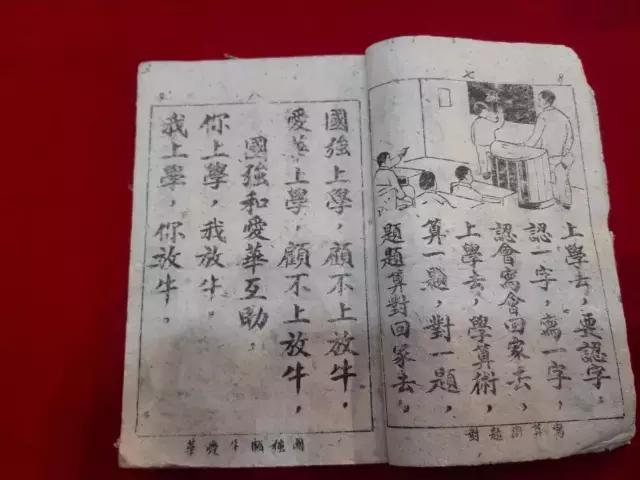 七
上學去，要認字。
認一字，寫一字，
認會寫會回家去，
上學去，學算術，
算一題，對一題，
題題算對回家去。
寫算術題對
八
國強上學，顧不上放牛，
愛華上學，顧不上放牛，
國強和愛華互助，
你上學，我放牛，
我上學，你放牛。
國強顧牛愛華